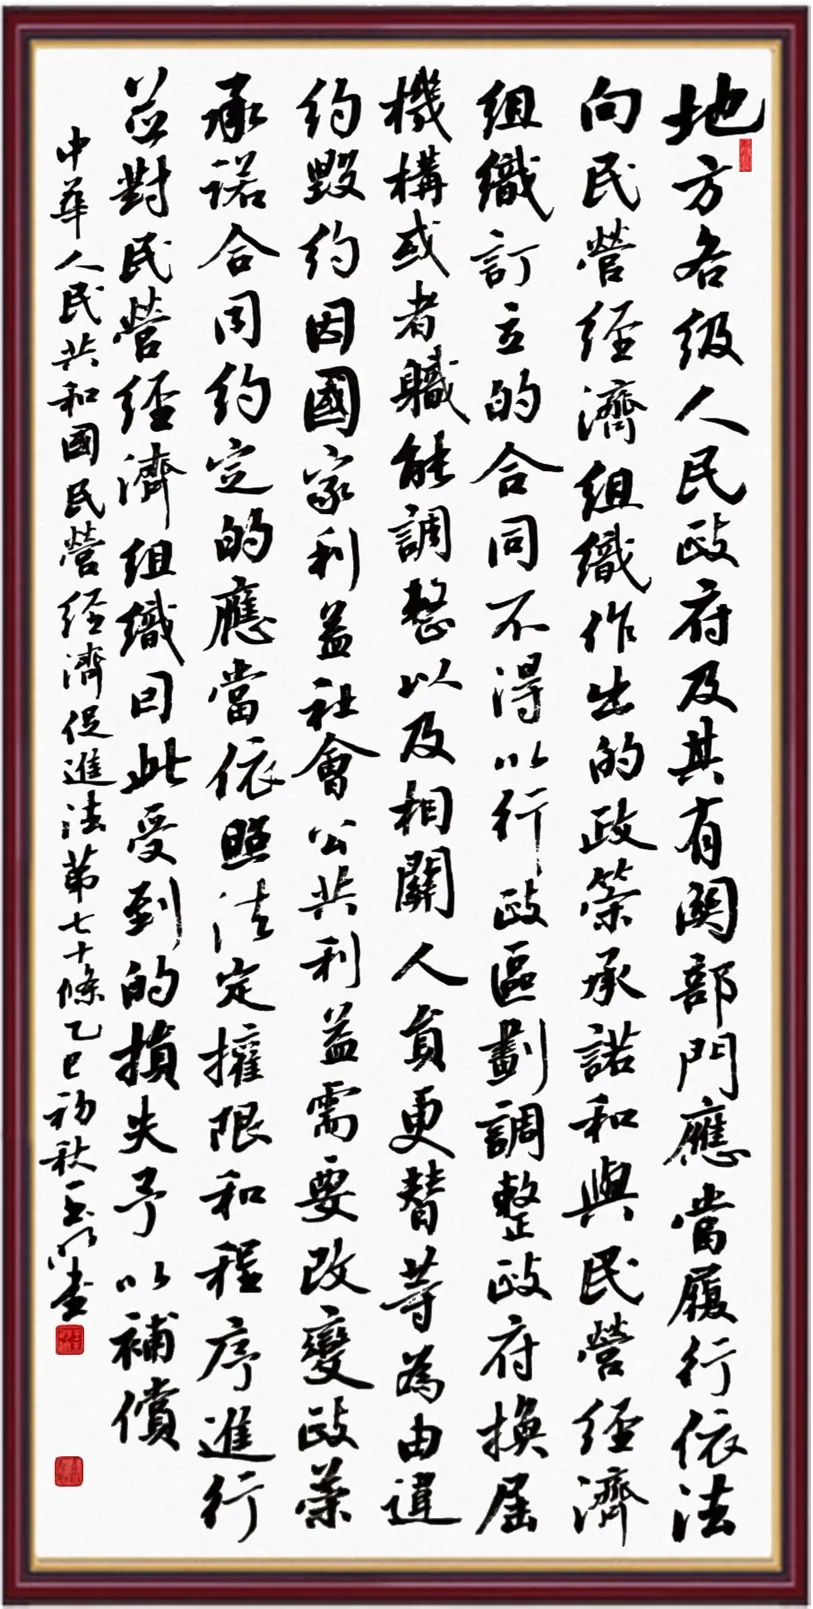 地方各級人民政府及其有関部門應當履行依法
向民營經濟組織作出的政策承諾和與民營經濟
組織訂立的合同不得以行政區劃調整政府換屆
機構或者職能調整以及相關人員更替等為由違
約毀約因國家利益社會公共利益需要改變政策
承諾合同約定的應當依照法定權限和程序進行
並對民營經濟組織因此受到的損失予以補償
中華人民共和國民營經濟促進法第七十條乙巳初秋玉明書